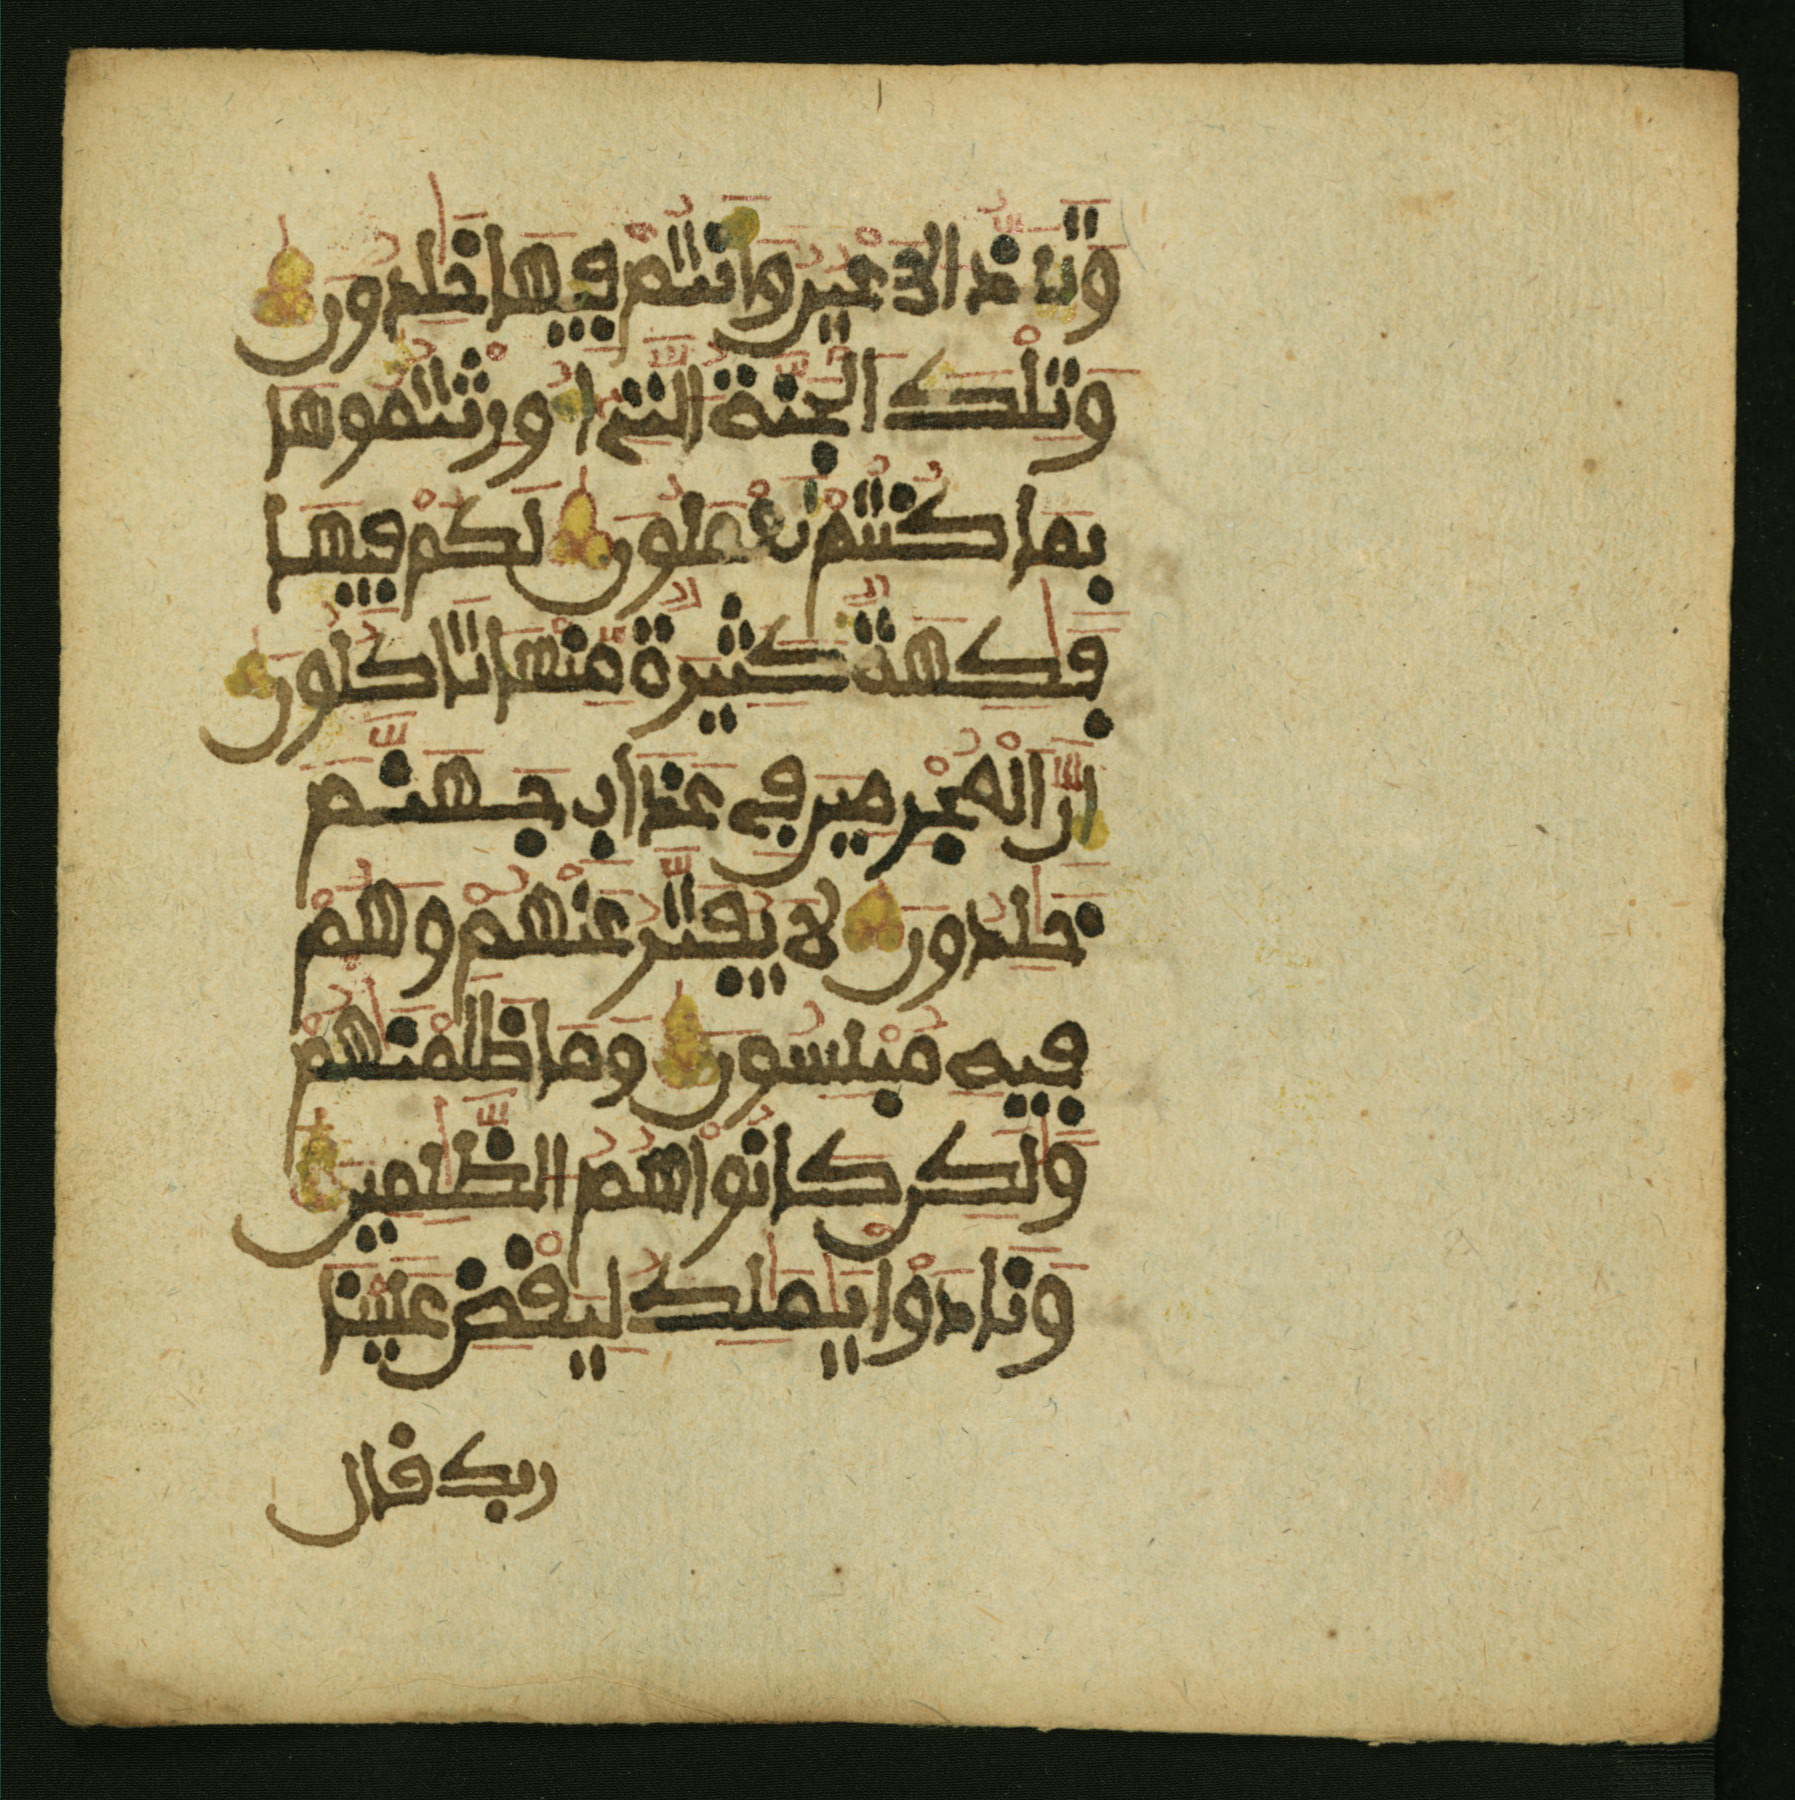 وَتَلَذُّ الَاعْيُنُ وَأَنتُمْ فِيهَا خَٰلِدُونَ
وَتِلْكَ الْجَنَّةُ الَّتِے أُورِثْتُمُوهَا
بِمَا كُنتُمْ تَعْمَلُونَ لَكُمْ فِيهَا
فَٰكِهَةٌ كَثِيرَةٌ مِّنْهَا تَاكُلُونَ
إِنَّ الْمُجْرِمِينَ فِے عَذَابِ جَهَنَّمَ
خَٰلِدُونَ لَا يُفَتَّرُ عَنْهُمْ وَهُمْ
فِيهِ مُبْلِسُونَ وَمَا ظَلَمْنَٰهُمْ
وَلَٰكِن كَانُواْ هُمُ الظَّٰلِمِينَ
وَنَادَوْاْ يَٰمَٰلِكُ لِيَقْضِ عَلَيْنَا
ربك قال